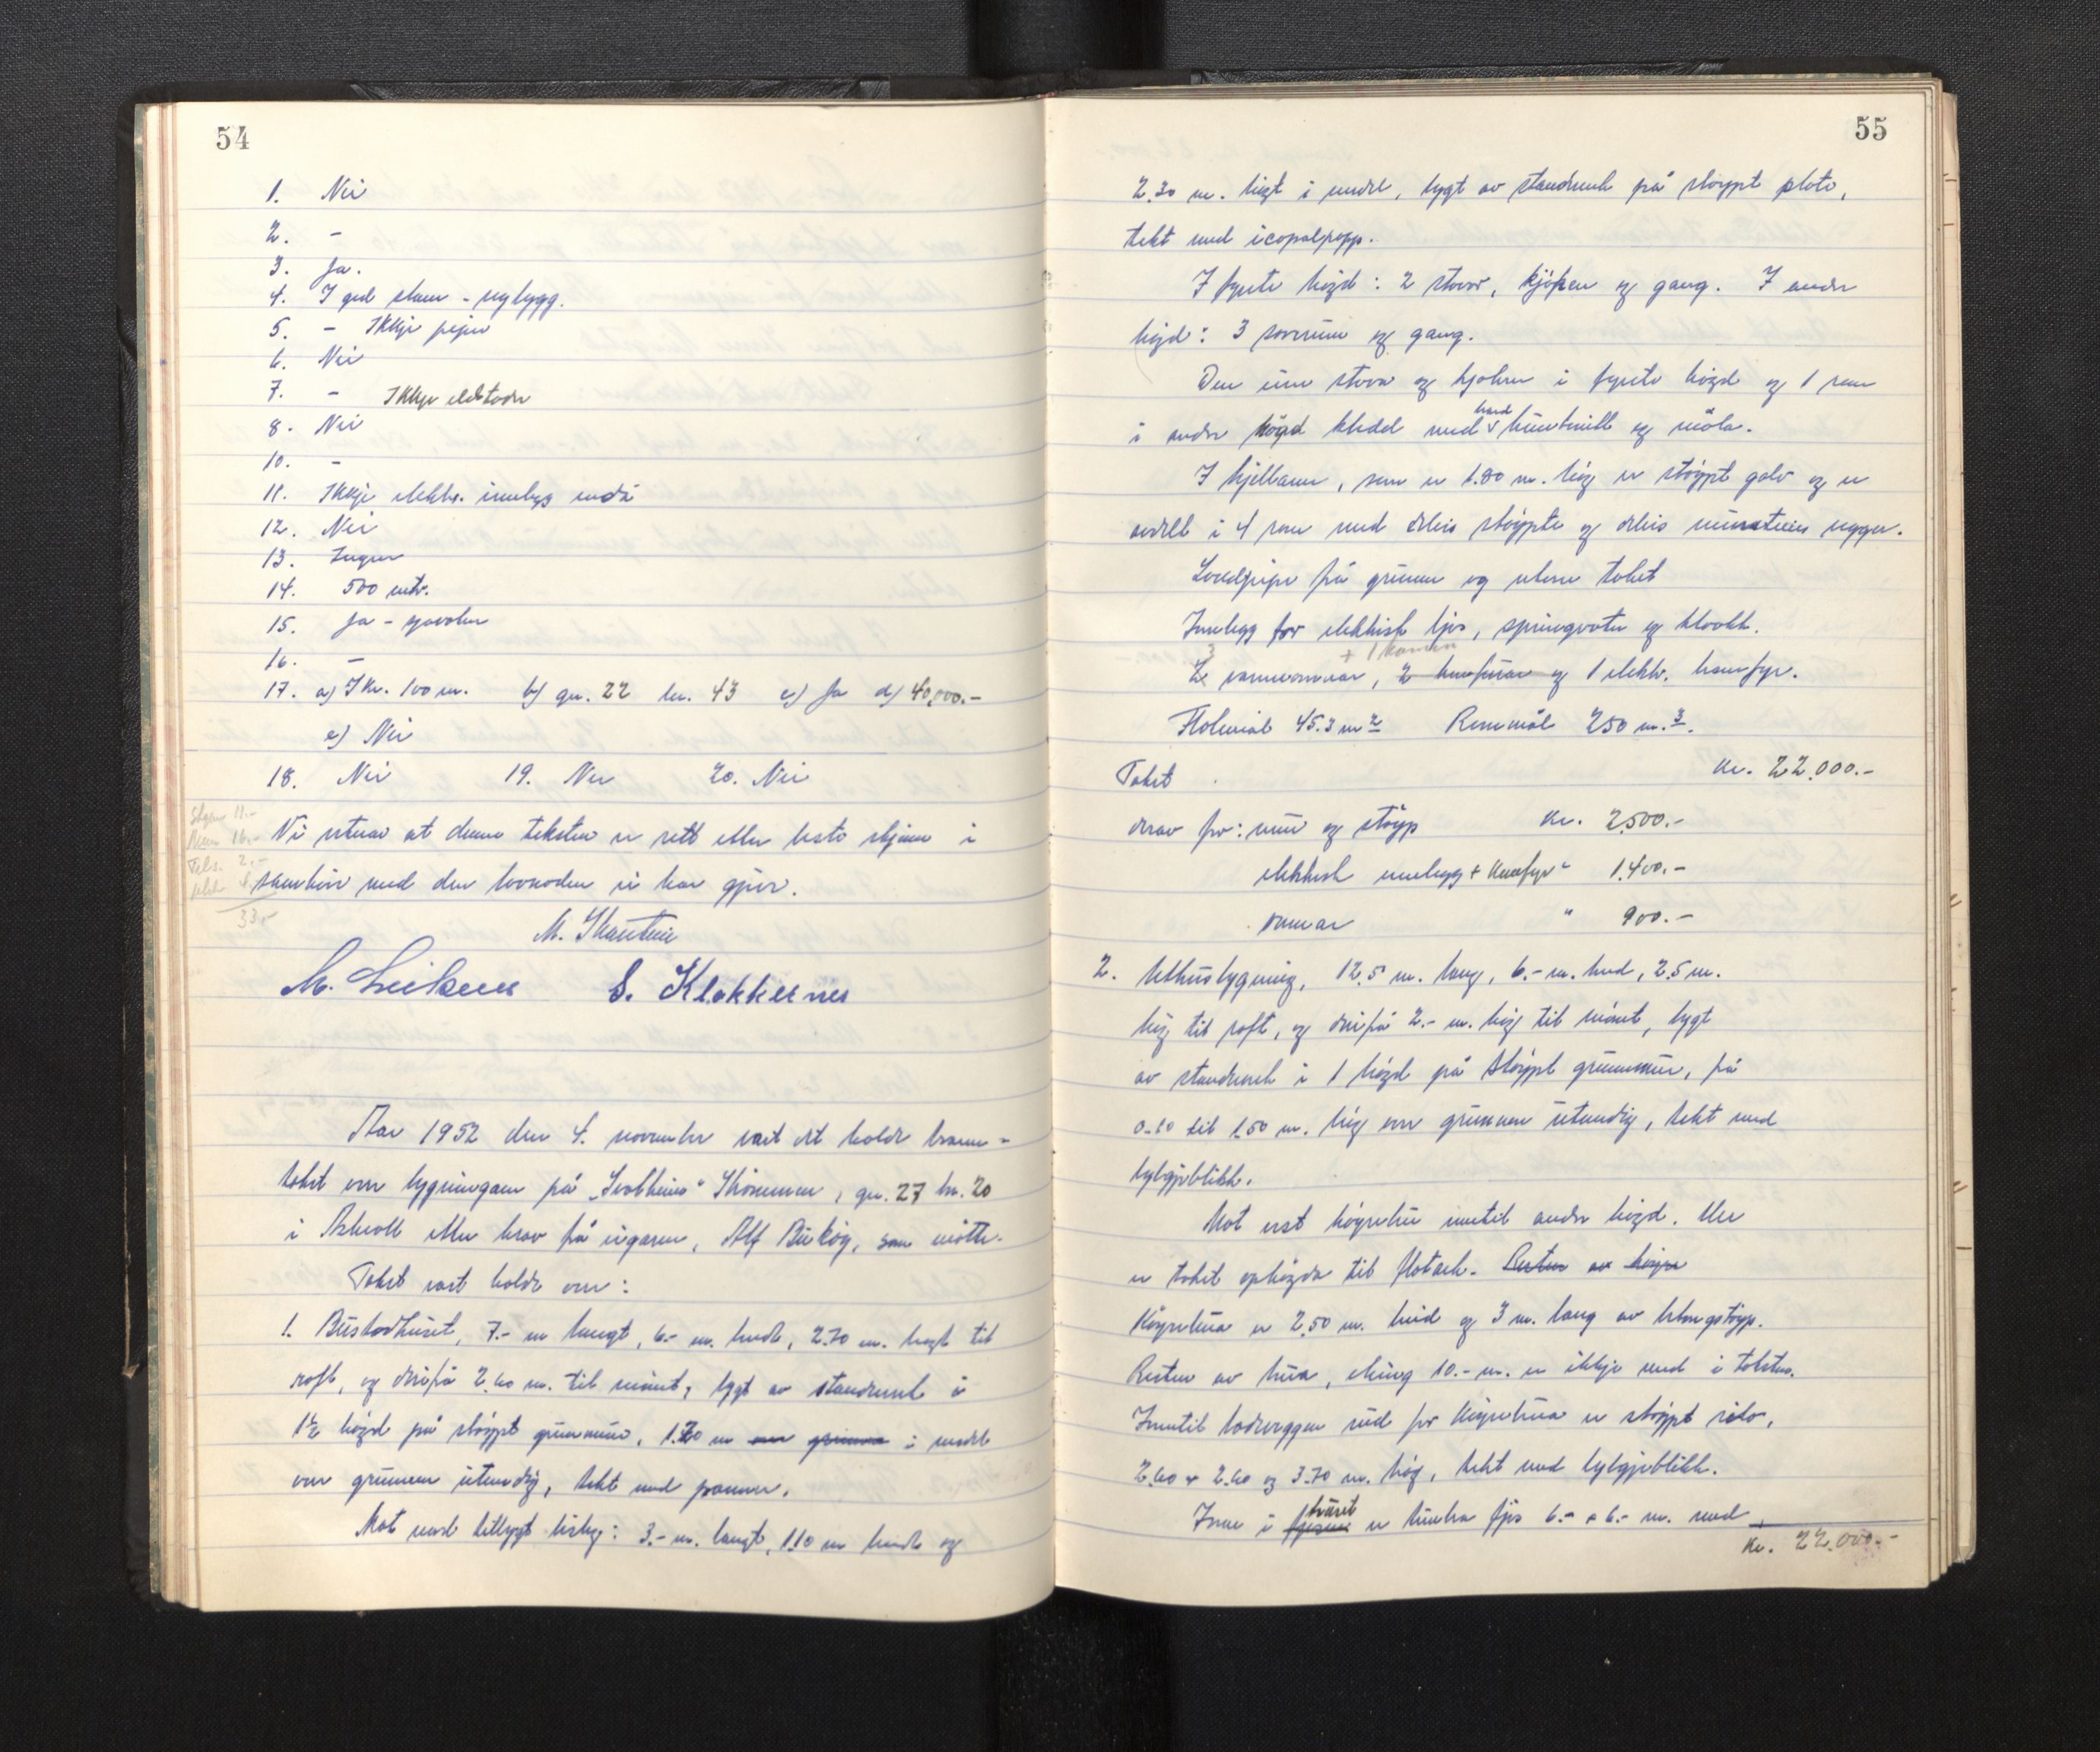 54
1. Nei
2. -
3. Ja.
4. I god stann - nybygg.
5. - Ikkje pipe
6. Nei
7. - Ikkje eldstader
8. Nei
10. -
11. Ikkje elektr. innlegg endå
12. Nei
13. Ingen
14. 500 mtr.
15. Ja -
16. -
17. a) I kr. 100 m. b) gn. 22 bn. 43 c) Ja d) 40,000.-
e) Nei
18. Nei 19. Nei 20. Nei
Vi vitnar at denne taksten er rett etter beste skjønn i
samhøve med den lovnaden vi har gjeve.
33.-
M. Skartun
M. Leiknes S. Klokkernes
Aar 1952 den 4. november vart det halde brann-
takst over bygningane på "Solheim" Strømmen, gn. 27 bn. 20
i Askvoll etter krav frå eigaren, Alf , som møtte.
Takst vart halde over:
1. Bustadhuset, 7.- m langt, 6.- m. bredt, 2.70 m. høgt til
raft, og derifrå 2.60 m. til mønet, bygt av standverk i
1½ høgd på støypt grunnmur, 1.20 m over grunnen i medel
over grunnen utvendig, tekt med panner.
Mot nord tilbygt bislag: 3.- m. langt, 1.10 m bredt og
55
2.30 m. høgt i medel, bygt av standverk på støypt plate,
tekt med icopalpapp.
I fyrste høgd: 2 stover, kjøken og gang. I andre
høgd: 3 soverum og gang.
Den eine stova og kjøken i fyrste høgd og 1 rom
i andre høgd kledd med hard og måla.
I kjellaren, som er 1.80 m. høg er støypt golv og er
avdelt i 4 rom med delvis støypte og delvis murstein vegger.
Loddpipe frå grunnen og utover taket
Innlegg for elektrisk ljos, springvatn og kloakk.
3 + 1 kamin
2 varmeomnar, 2 og 1 elektr. komfyr.
Flatemål 45.3 m² Rommål 250 m.³.
Takst Kr. 22.000.-
derav for: mur og støyp Kr. 2500.-
elektrisk innlegg + komfyr " 1.400.-
omnar " 900.-
2. Uthusbygning, 12.5 m. lang, 6.- m. breid, 2.5 m.
høg til raft, og derifrå 2.- m. høg til mønet, bygt
av standverk i 1 høgd på støypt grunnmur, frå
0.20 til 1.50 m. høg over grunnen utvendig, tekt med
bylgjeblikk.
Mot vest køyrebru inntil andre høgd. Her
er taket opphøgda til flatark. Resten av køyre
Køyrebrua er 2.50 m. breid og 3 m. lang av betongstøyp.
Resten av brua, ikring 10.- m. er ikkje med i taksten.
Inntil ladeveggen sud for køyrebrua er støypt silo,
2.60 x 2.60 og 3.70 m. høg, tekt med bylgjeblikk.
Inne i huset er timbra fjøs 6.- x 6.- m. med
Kr. 22.000.-